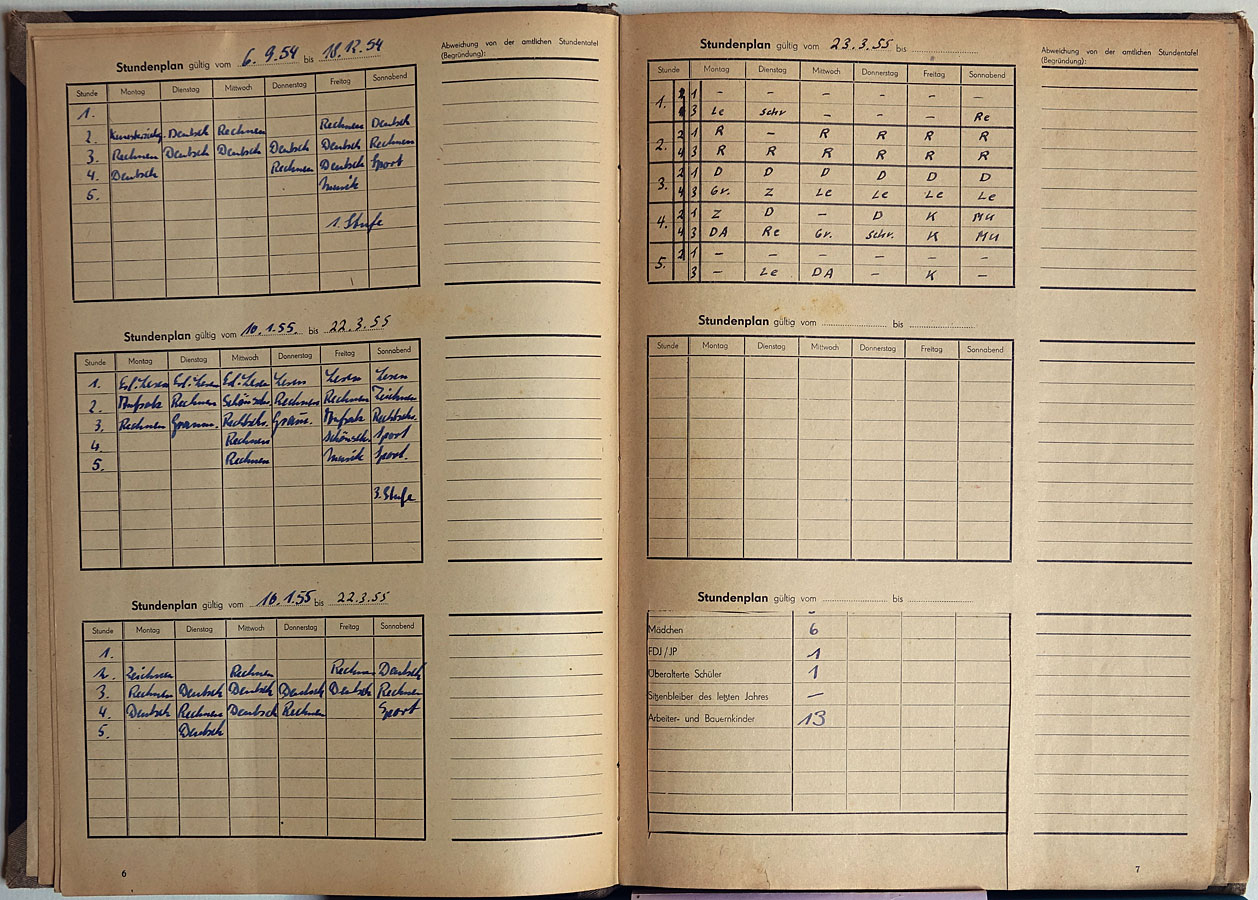 Stundenplan gültig vom 6.9.54 bis 18.12.54
Abweichung von der amtlichen Stundentafel
(Begründung):
Stunde Montag Dienstag Mittwoch Donnerstag Freitag Sonnabend
1.
2. Deutsch Rechnen Rechnen Deutsch
3. Rechnen Deutsch Deutsch Deutsch Deutsch Rechnen
4. Deutsch Rechnen Deutsch Sport
5. Musik
1. Stufe
Stundenplan gültig vom 10.1.55. bis 22.3.55
Stunde Montag Dienstag Mittwoch Donnerstag Freitag Sonnabend
1. Erl.-Lesen Erl.-Lesen Erl.-Lesen Lesen Lesen Lesen
2. Aufsatz Rechnen Schönschr. Rechnen Rechnen Zeichnen
3. Rechnen Gramm. Rechtschr. Gramm. Aufsatz Rechtschr.
4. Rechnen Schönschr. Sport
5. Rechnen Musik Sport.
3. Stufe
Stundenplan gültig vom 10.1.55 bis 22.3.55
Stunde Montag Dienstag Mittwoch Donnerstag Freitag Sonnabend
1.
2. Zeichnen Rechnen Rechnen Deutsch
3. Rechnen Deutsch Deutsch Deutsch Deutsch Rechnen
4. Deutsch Rechnen Deutsch Rechnen Sport
5. Deutsch
6
Stundenplan gültig vom 23.3.55 bis
Abweichung von der amtlichen Stundentafel
(Begründung):
Stunde Montag Dienstag Mittwoch Donnerstag Freitag Sonnabend
1. 2 1 – – – – – –
4 3 Le Schr – – – Re
2. 2 1 R – R R R R
4 3 R R R R R R
3. 2 1 D D D D D D
4 3 Gr. Z Le Le Le Le
4. 2 1 Z D – D K Mu
4 3 DA Re Gr. Schr. K Mu
5. 2 1 – – – – – –
3 – Le DA – K –
Stundenplan gültig vom bis
Stunde Montag Dienstag Mittwoch Donnerstag Freitag Sonnabend
Stundenplan gültig vom bis
Mädchen 6
FDJ/JP 1
Überalterte Schüler 1
Sitzenbleiber des letzten Jahres –
Arbeiter- und Bauernkinder 13
7